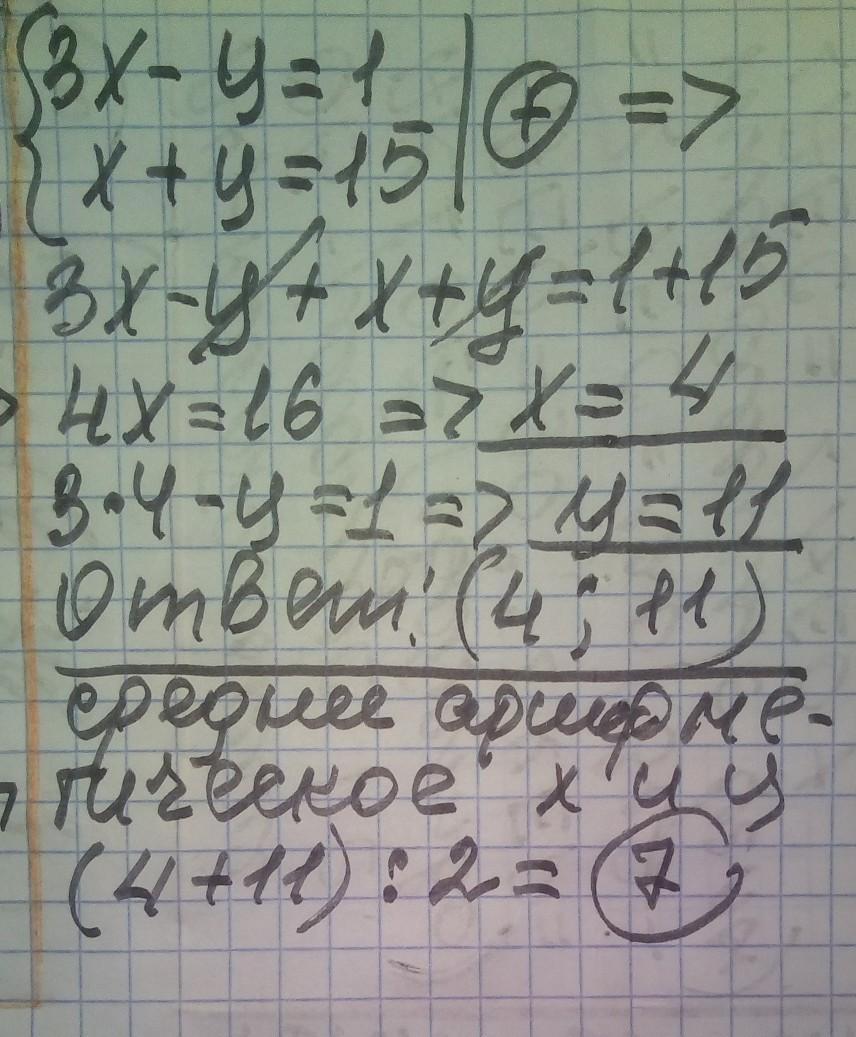 {3x - y = 1 | ⊕ =>
x + y = 15
3x - y + x + y = 1 + 15
4x = 16 => x = 4
3 · 4 - y = 1 => y = 11
Ответ: (4; 11)
среднее арифме-
тическое x и y
(4 + 11) : 2 = 7